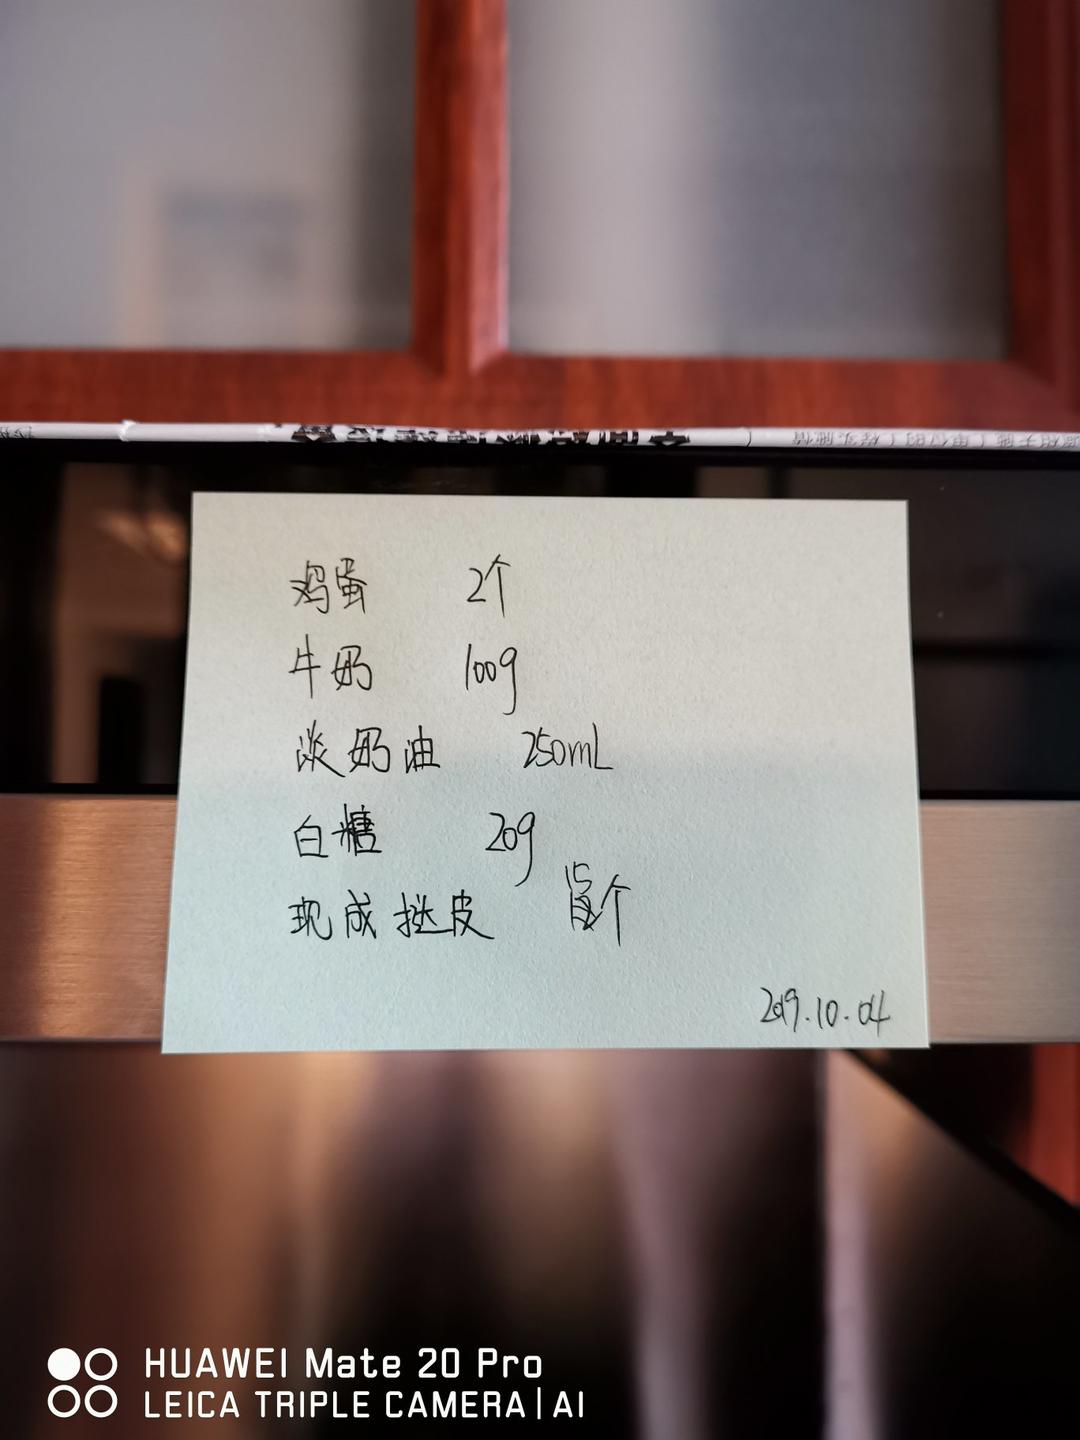 鸡蛋 2个
牛奶 100g
淡奶油 250mL
白糖 20g
现成挞皮 15个
2019.10.04
HUAWEI Mate 20 Pro
LEICA TRIPLE CAMERA|AI